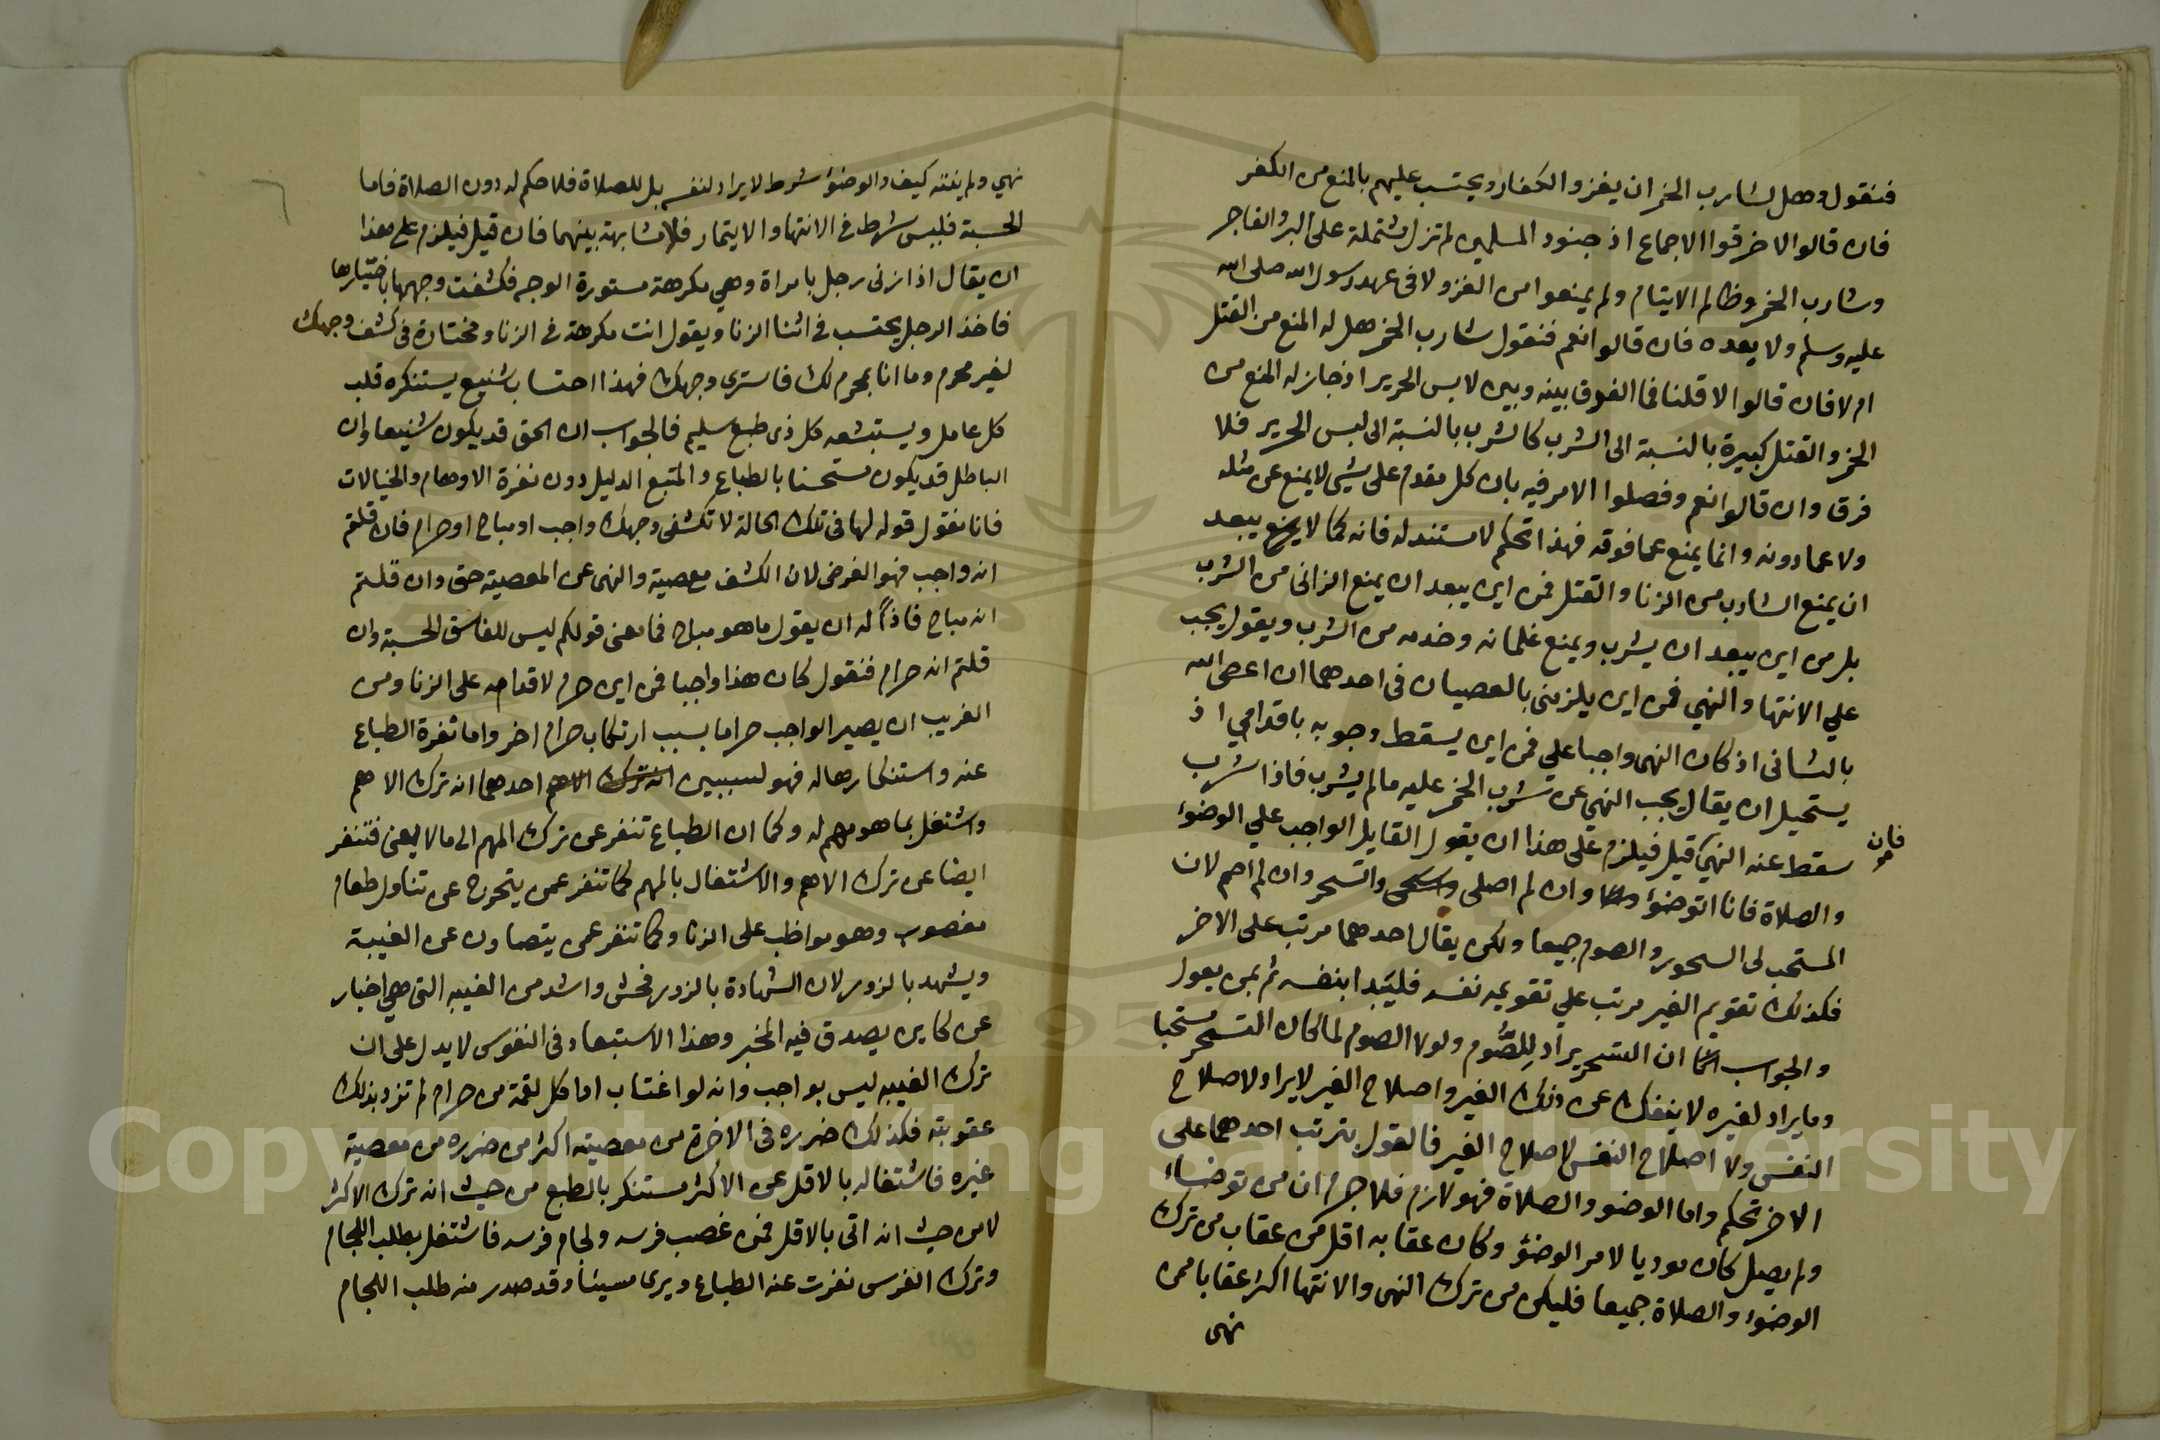 فنقول وهل لشارب الخمر ان يغزو الكفار ويحتسب عليهم بالمنع من الكفر
فان قالوا لا خرقوا الاجماع اذ جنود المسلمين لم تزل مشتملة على البر والفاجر
وشارب الخمر وظالم الايتام ولم يمنعوا من الغزو لا في عهد رسول الله صلى الله
عليه وسلم ولا بعده فان قالوا نعم فنقول شارب الخمر هل له المنع من القتل
ام لا فان قالوا لا قلنا فما الفرق بينه وبين لابس الحرير اذ جاز له المنع من
الخمر والقتل كبيرة بالنسبة الى الشرب كالشرب بالنسبة الى لبس الحرير فلا
فرق وان قالوا نعم وفصلوا الامر فيه بان كل مقدم على شيئ لا يمنع عن مثله
ولا عما دونه وانما يمنع عما فوقه فهذا تحكم لا مستند له فانه كما لا يبعد
ان يمنع الشارب من الزنا والقتل فمن اين يبعد ان يمنع الزاني من الشرب
بل من اين يبعد ان يشرب ويمنع غلمانه وخدمه من الشرب ويقول يجب
علي الانتها والنهي فمن اين يلزمني بالعصيان في احدهما ان اعصى الله
بالثاني اذ كان النهى واجبا علي فمن اين يسقط وجوبه باقدامي اذ
يستحيل ان يقال يجب النهي عن شرب الخمر عليه مالم يشرب فاذا شرب
سقط عنه النهي قيل فيلزم على هذا ان يقول القايل الواجب علي الوضوء
فان
والصلاة فانا اتوضوء وان لم اصلى واتسحر وان لم اصم لان
المستحب لى السحور والصوم جميعا ولكن يقال احدهما مرتب على الاخر
فكذلك تقويم الغير مرتب علي تقويمه نفسه فليبدا بنفسه ثم بمن يعول
والجواب ان التسحر يراد للصوم ولولا الصوم لما كان التسحر مستحبا
وما يراد لغيره لا ينفك عن ذلك الغير واصلاح الغير لا يراد لاصلاح
النفس ولا اصلاح النفس لاصلاح الغير فالقول بترتب احدهما على
الاخر تحكم واما الوضو والصلاة فهو لازم فلا جرم ان من توضاء
ولم يصل كان موديا لامر الوضوء وكان عقابه اقل من عقاب من ترك
الوضوء والصلاة جميعا فليكن من ترك النهى والانتها اكثر عقابا ممن
نهى
نهي ولم ينته كيف والوضوء شرط لا يراد لنفسه بل للصلاة فلا حكم له دون الصلاة فاما
الحسبة فليس شرط في الانتها والايتمار فلا مشابهة بينهما فان قيل فيلزم على هذا
ان يقال اذا زنى رجل بامراة وهي مكرهة مستورة الوجه فكشفت وجهها باختيارها
فاخذ الرجل يحتسب في اثنا الزنا ويقول انت مكرهة في الزنا ومختارة في كشف وجهك
لغير محرم وما انا بمحرم لك فاسترى وجهك فهذا احتساب شنيع يستنكره قلب
كل عامل ويستبشعه كل ذى طبع سليم فالجواب ان الحق قد يكون شنيعا وان
الباطل قد يكون مستحسنا بالطباع والمتبع الدليل دون نفرة الاوهام والخيالات
فانا نقول قوله لها في تلك الحالة لا تكشفى وجهك واجب او مباح او حرام فان قلتم
انه واجب فهو الغرض لان الكشف معصية والنهى عن المعصية حق وان قلتم
انه مباح فاذاً له ان يقول ما هو مباح فما معنى قولكم ليس للفاسق الحسبة وان
قلتم انه حرام فنقول كان هذا واجبا فمن اين حرم لاقدامه على الزنا ومن
الغريب ان يصير الواجب حراما بسبب ارتكاب حرام اخر واما نفرة الطباع
عنه واستنكارها له فهو لسببين احدهما انه ترك الاهم
واشتغل بما هو مهم له وكما ان الطباع تنفر عن ترك المهم الى مالا يعنى فتنفر
ايضا عن ترك الاهم والاشتغال بالمهم كما تنفر عمن يتحرج عن تناول طعام
مغصوب وهو مواظب على الزنا وكما تنفر عمن يتصاون عن الغيبة
ويشهد بالزور لان الشهادة بالزور فحش واشد من الغيبه التى هي اخبار
عن كاين يصدق فيه المخبر وهذا الاستبعاد في النفوس لا يدل على ان
ترك الغيبه ليس بواجب وانه لو اغتاب او اكل لقمة من حرام لم تزد بذلك
عقوبته فكذلك ضرره في الاخرة من معصيته اكثر من ضرره من معصية
غيره فاشتغاله بالاقل عن الاكثر مستنكر بالطبع من حيث انه ترك الاكثر
لا من حيث انه اتى بالاقل فمن غصب فرسه ولجام فرسه فاشتغل بطلب اللجام
وترك الفرس نفرت عنه الطباع ويرى مسيئا وقد صدر منه طلب اللجام
Copyright © King Saud University